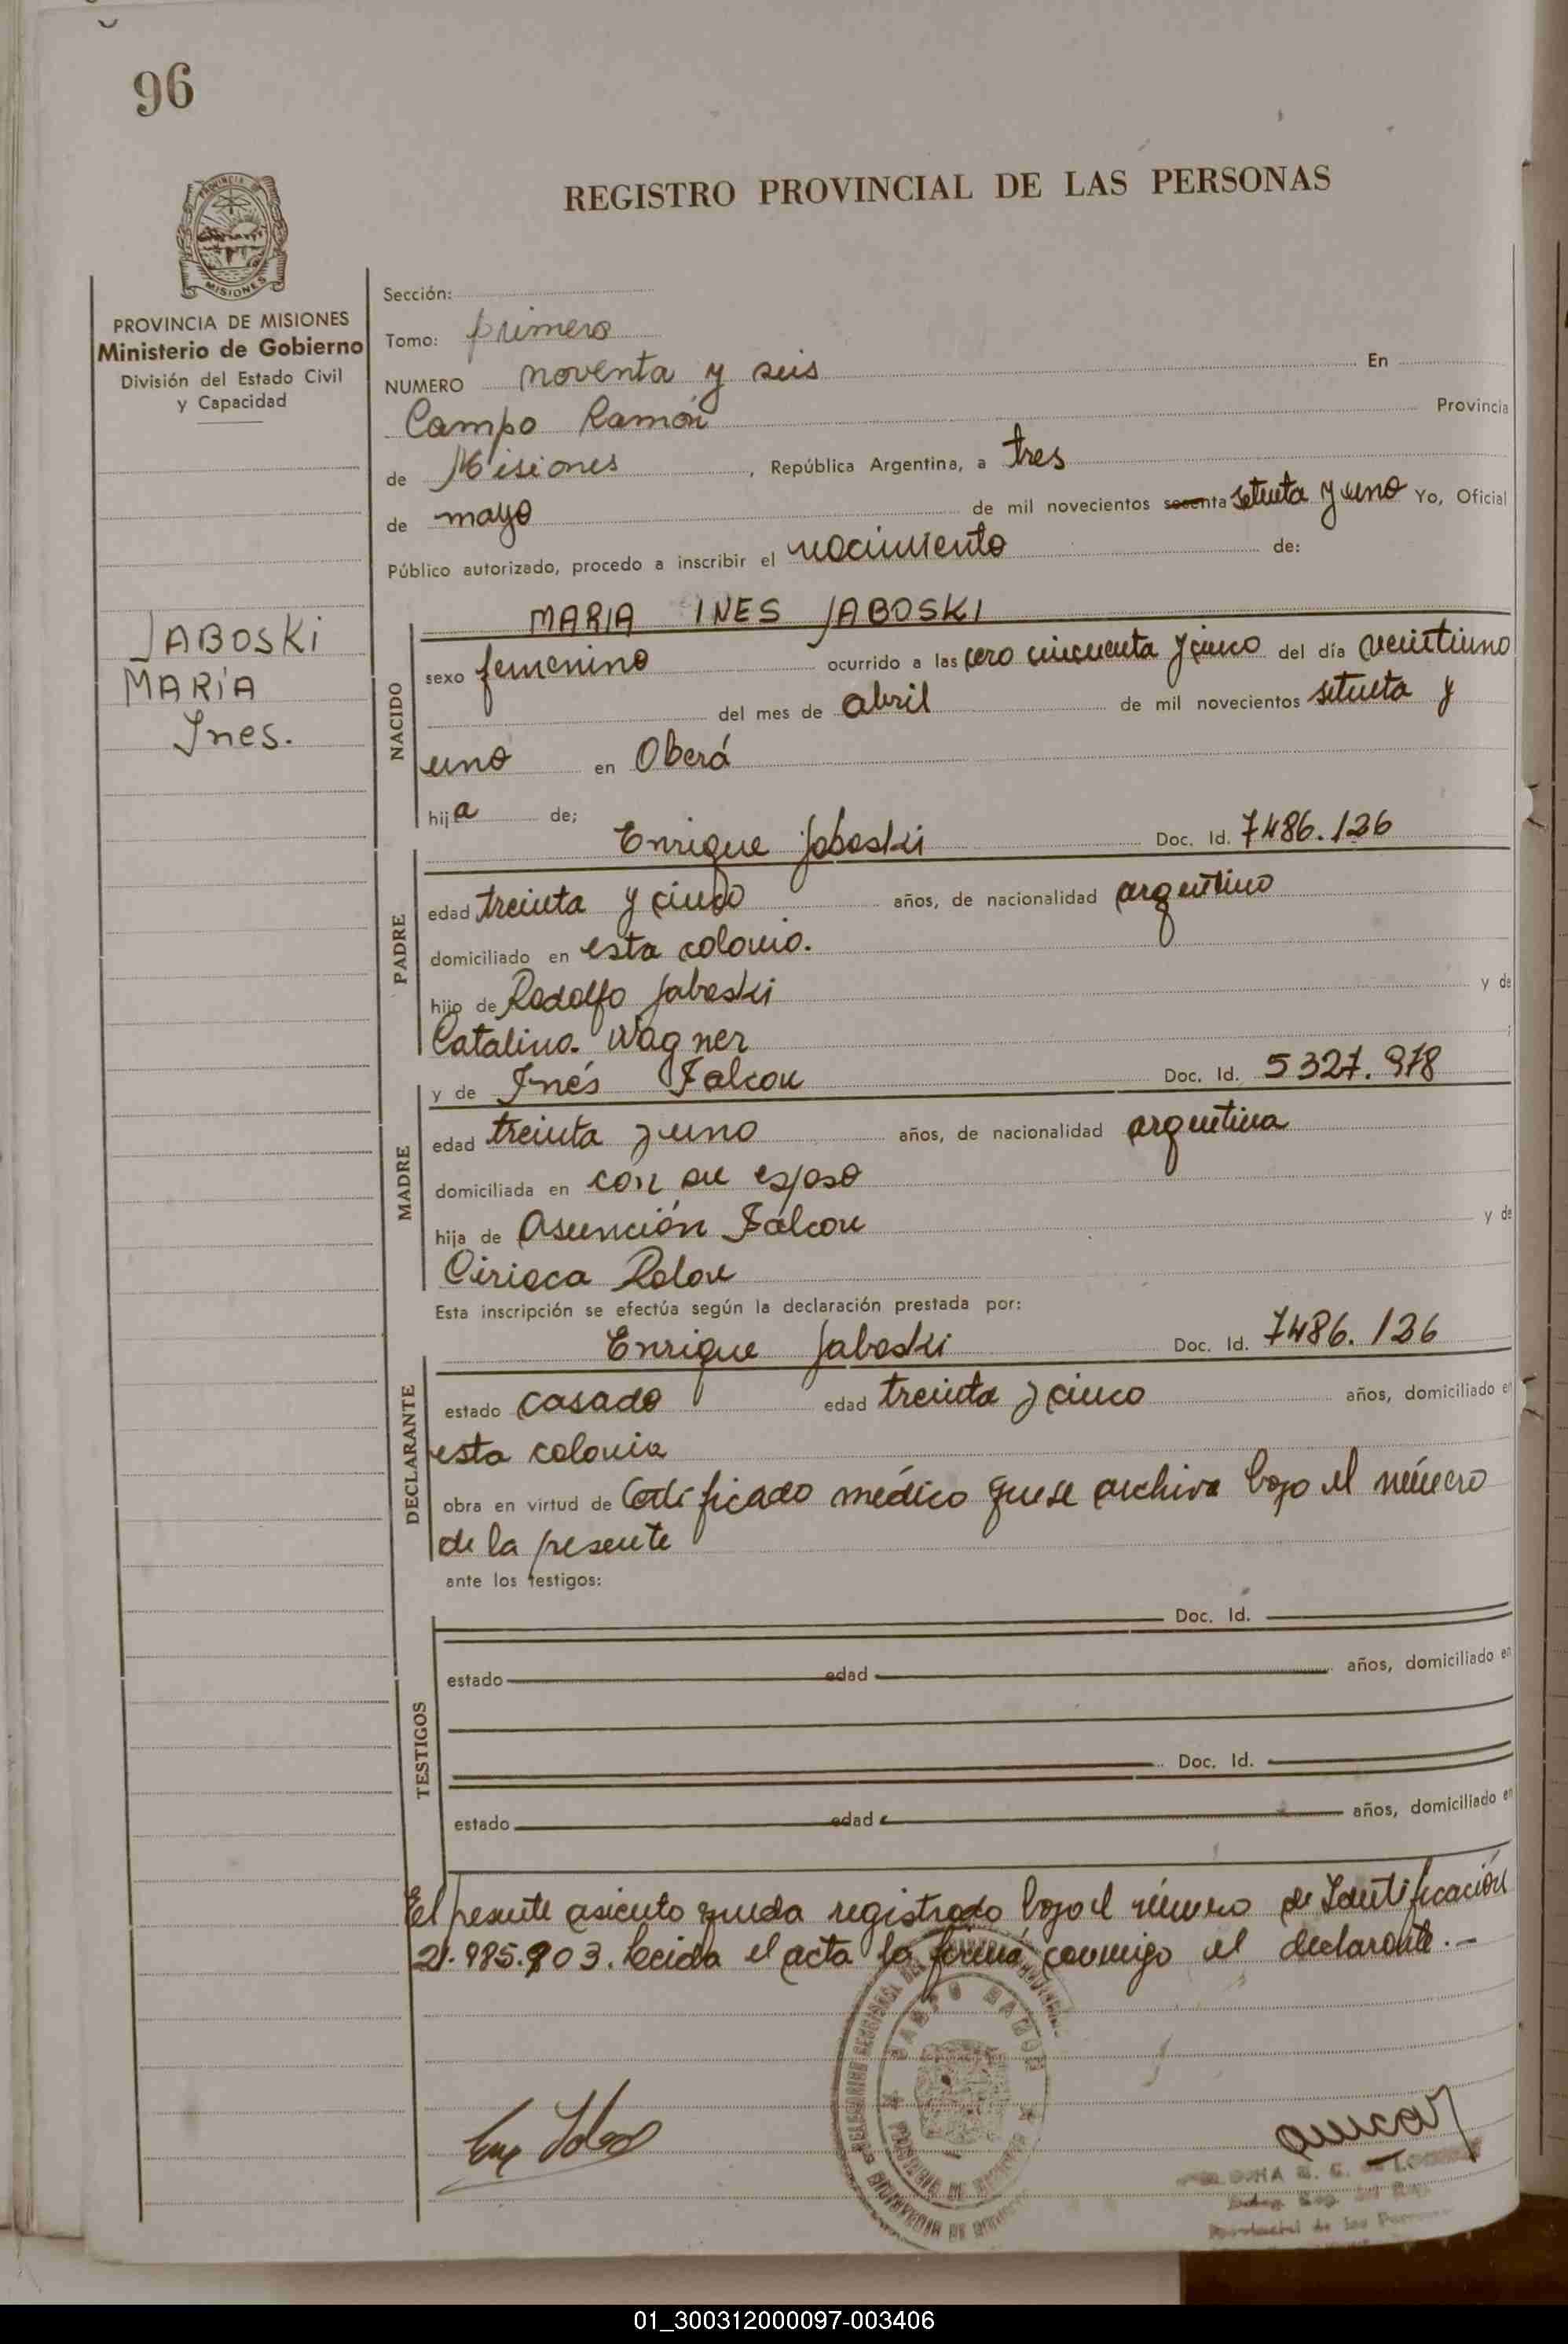 96
REGISTRO PROVINCIAL DE LAS PERSONAS
PROVINCIA DE MISIONES
MISIONES
PROVINCIA DE MISIONES
Ministerio de Gobierno
División del Estado Civil
y Capacidad
JABOSKi
MARÍA
Ines.
Sección:
Tomo: primero
NUMERO noventa y seis En
Campo Ramón Provincia
de Misiones , República Argentina, a tres
de mayo de mil novecientos sesenta setenta y uno Yo, Oficial
Público autorizado, procedo a inscribir el nacimiento de:
NACIDO
MARIA INES JABOSKI
sexo femenino ocurrido a las cero cincuenta y cinco del día veintiuno
del mes de abril de mil novecientos setenta y
uno en Oberá
hija de;
PADRE
Enrique Jaboski Doc. Id. 7486.126
edad treinta y cinco años, de nacionalidad argentino
domiciliado en esta colonia.
hijo de Rodolfo Jaboski y de
Catalina Wagner ;
MADRE
y de Inés Falcon Doc. Id. 5327.978
edad treinta y uno años, de nacionalidad argentina
domiciliada en con su esposo
hija de Asunción Falcon y de
Ciriaca Rolon
Esta inscripción se efectúa según la declaración prestada por:
DECLARANTE
Enrique Jaboski Doc. Id. 7486.126
estado casado edad treinta y cinco años, domiciliado en
esta colonia
obra en virtud de Certificado médico que se archiva bajo el número
de la presente
ante los testigos:
TESTIGOS
Doc. Id.
estado edad años, domiciliado en
Doc. Id.
estado edad años, domiciliado en
El presente asiento queda registrado bajo el número de Identificación
21.985.903. Leida el acta la firma conmigo el declarante.-
CAMPO RAMON
PROVINCIA DE MISIONES
Provincial de las Personas
01_300312000097-003406